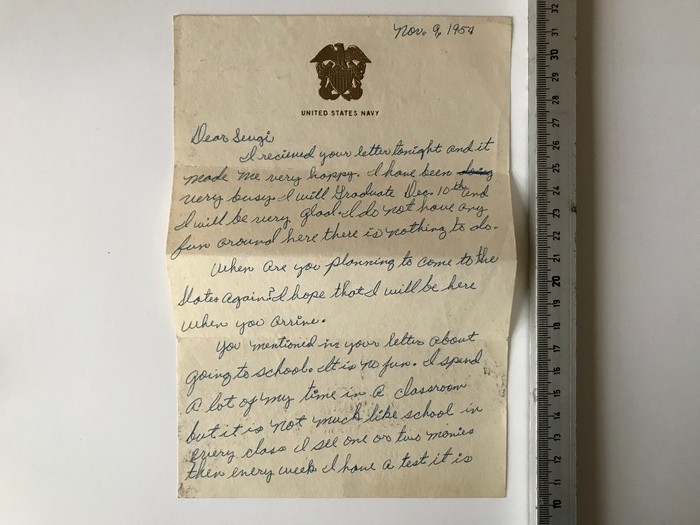 Nov. 9, 1954
UNITED STATES NAVY
Dear Sergi
I recieved your letter tonight and it
made me very happy. I have been doing
very busy. I will Graduate Dec. 10th and
I will be very glad. I do not have any
fun around here there is nothing to do.
When are you planning to come to the
States again? I hope that I will be here
when you arrive.
You mentioned in your letter about
going to school. It is no fun. I spend
a lot of my time in a classroom
but it is not much like school in
every class I see one or two movies
then every week I have a test it is
32
31
30
29
28
27
26
25
24
23
22
21
20
19
18
17
16
15
14
13
12
11
10